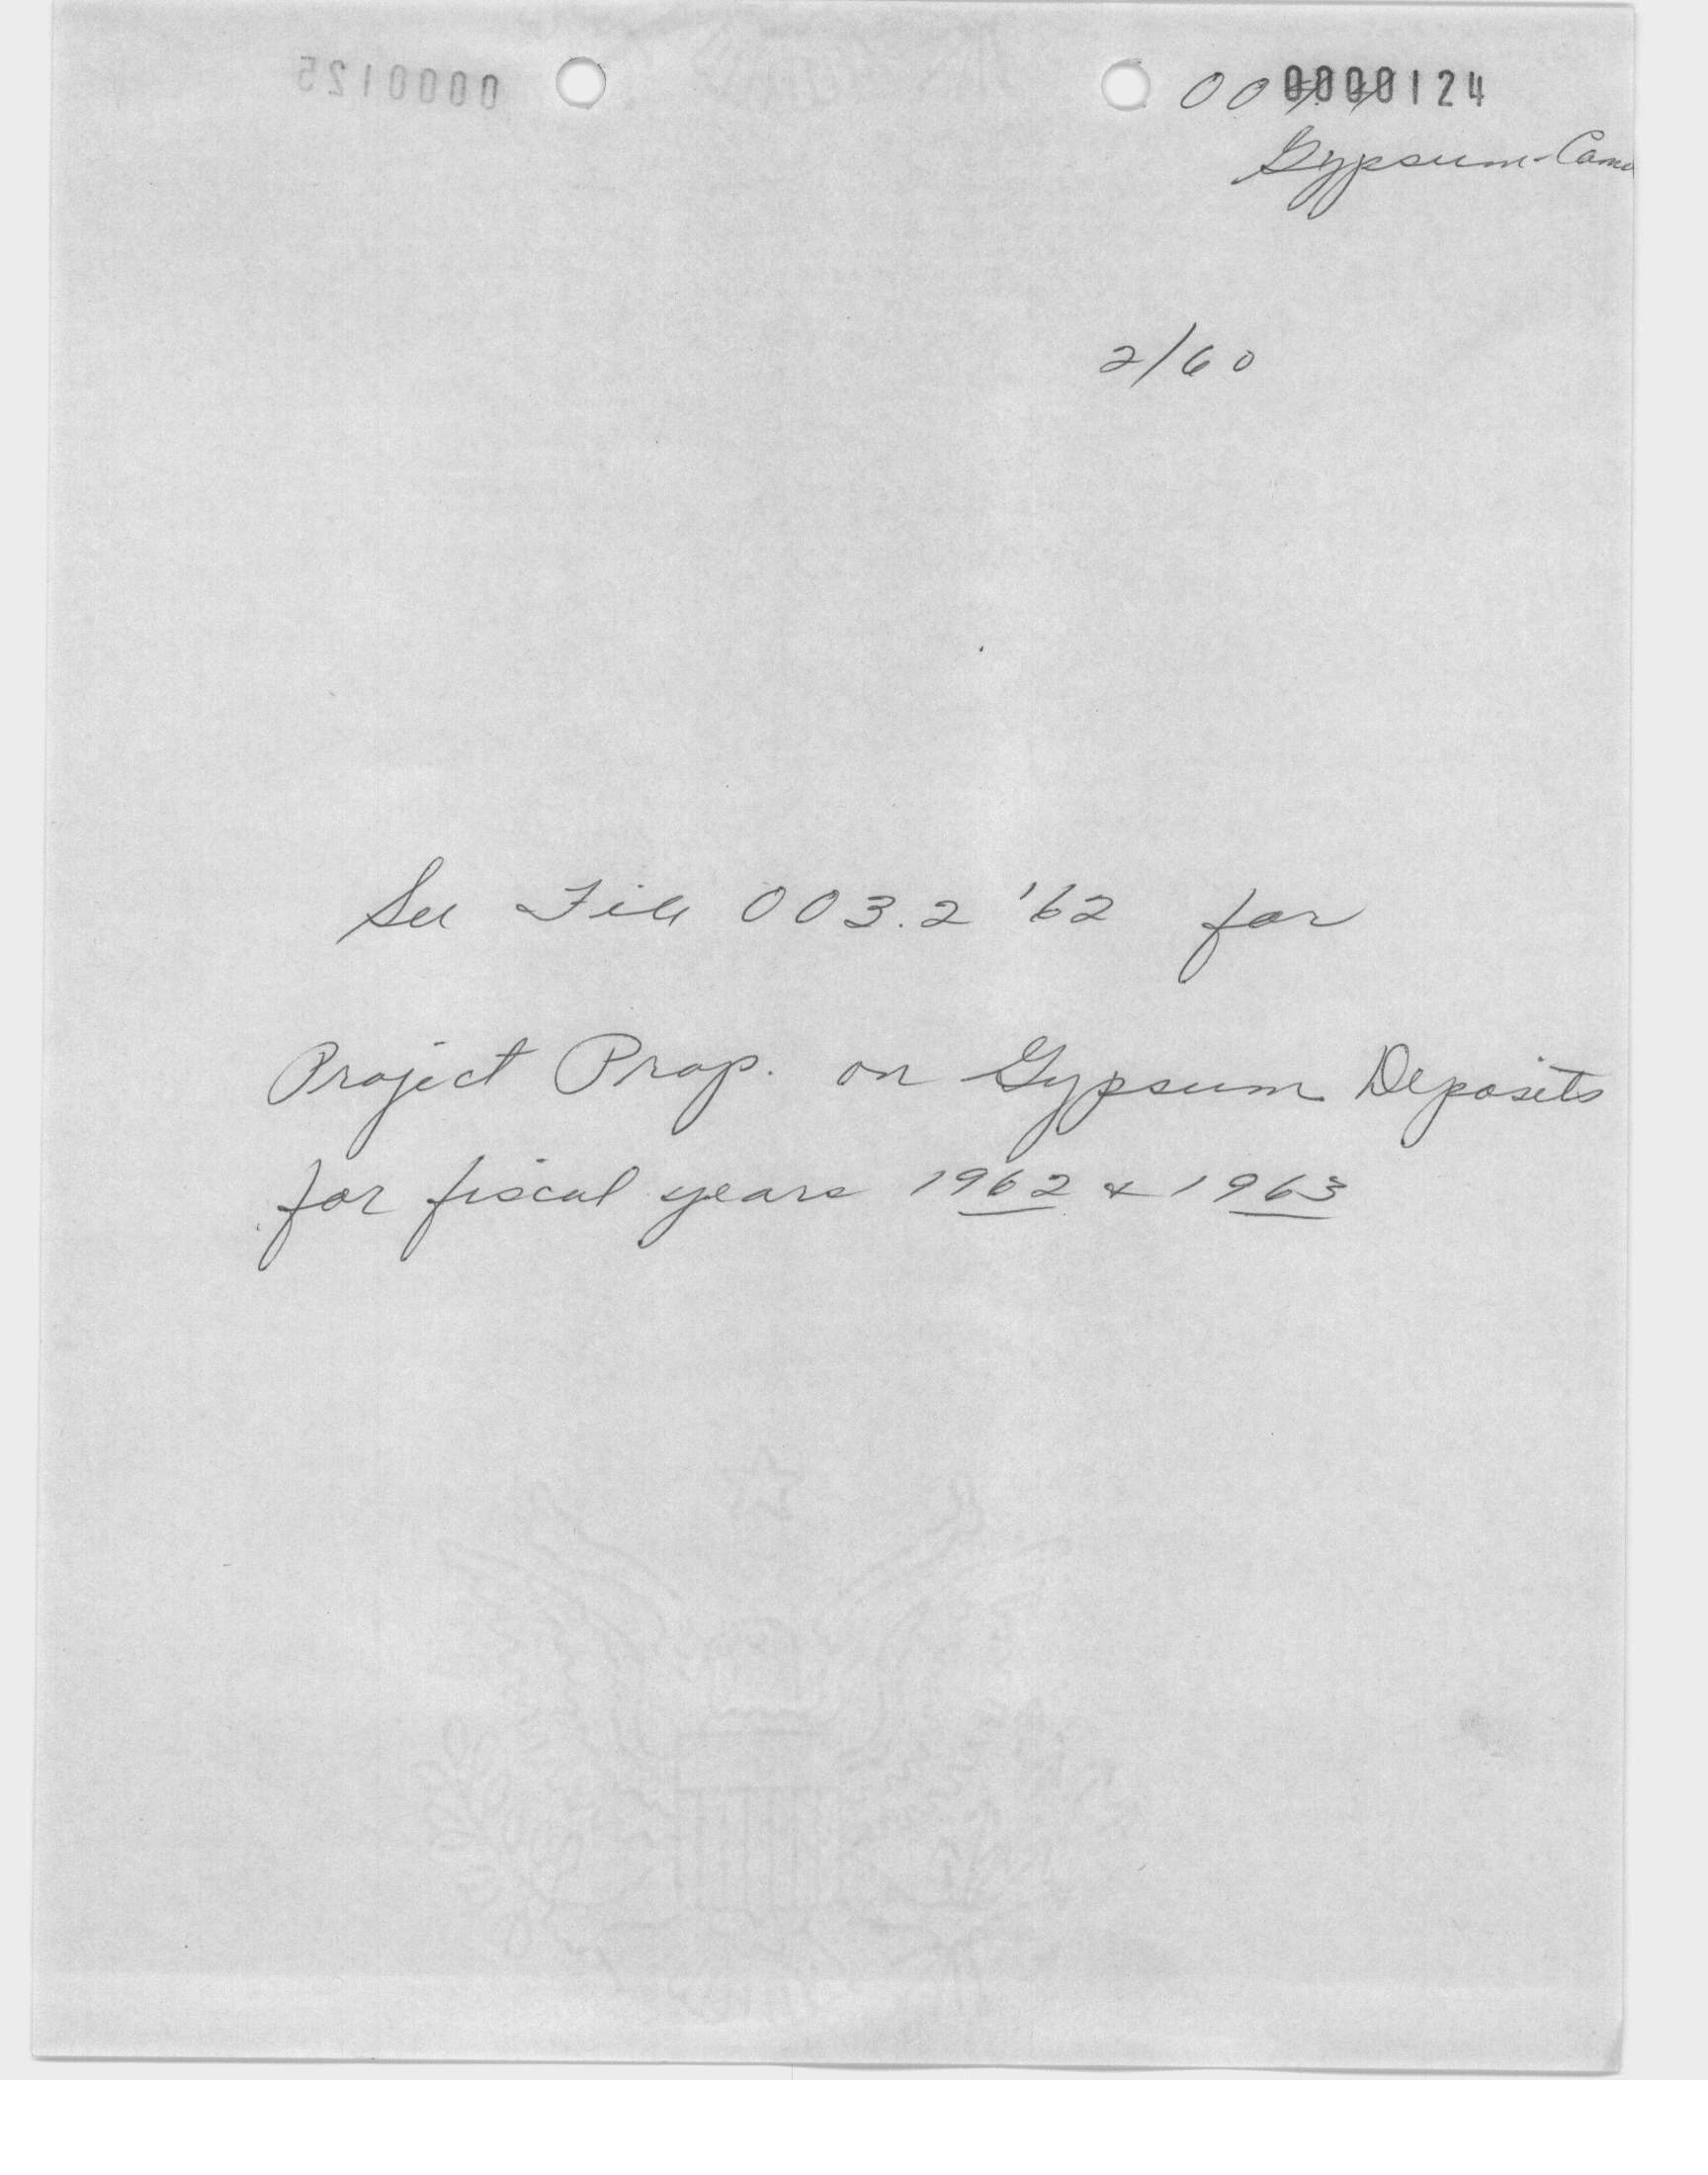 0000124
2/60
See File 003.2 '62 for
Project Prop. on Gypsum Deposits
for fiscal years 1962 & 1963
0000125
Gypsum-